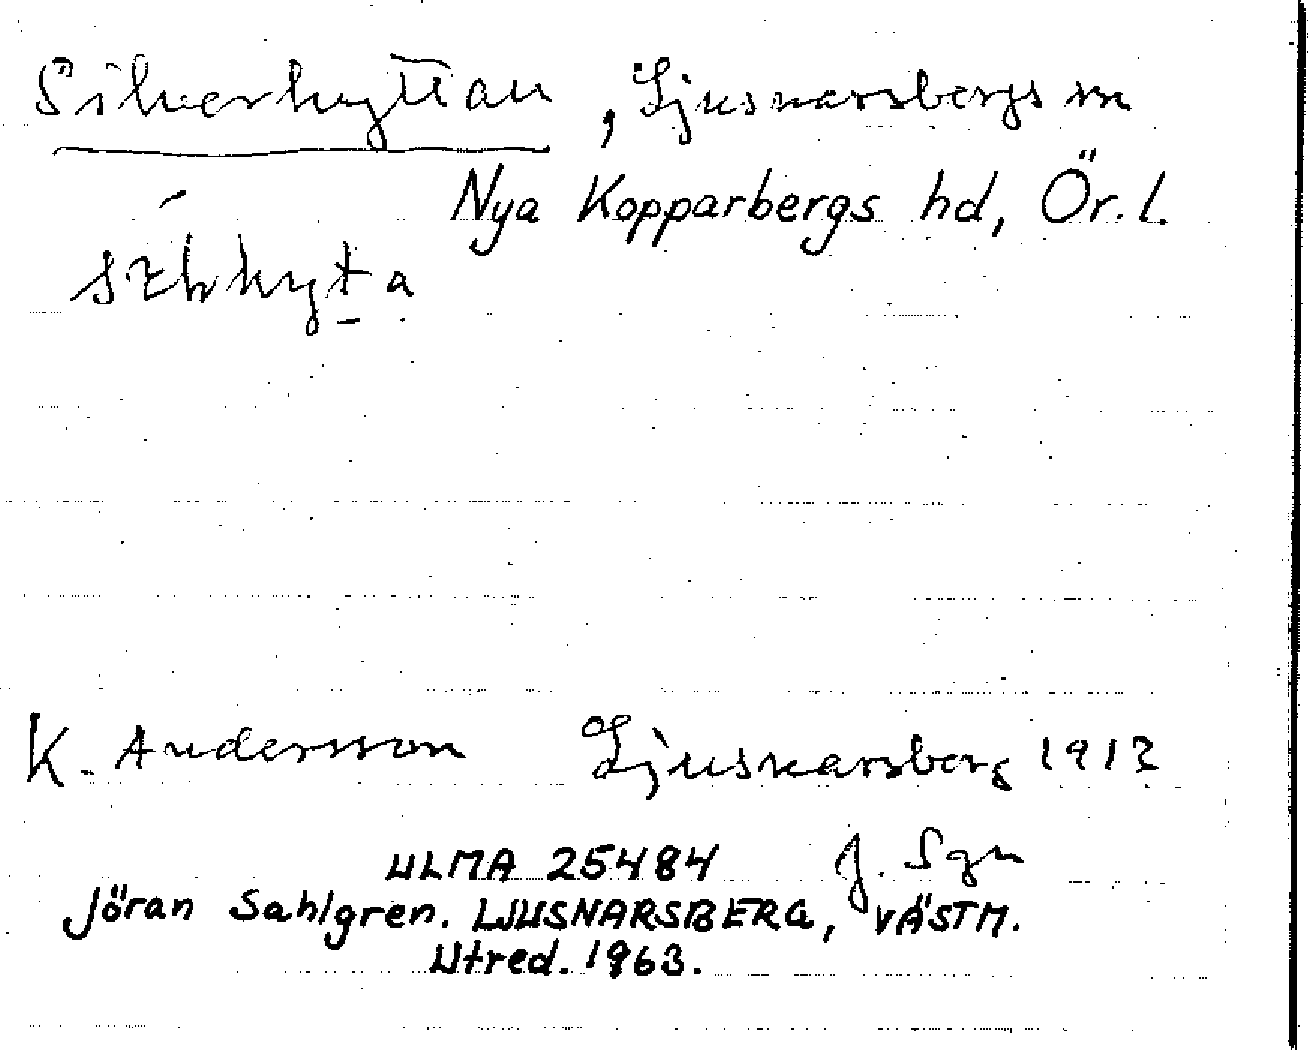 Silverhyttan, Ljusnarsbergs sn
Nya Kopparbergs hd, Ör. l.
K. Andersson Ljusnarsberg 1913
J. Sgn
ULMA 25484
Jöran Sahlgren. LJUSNARSBERG, VÄSTM.
Utred. 1963.